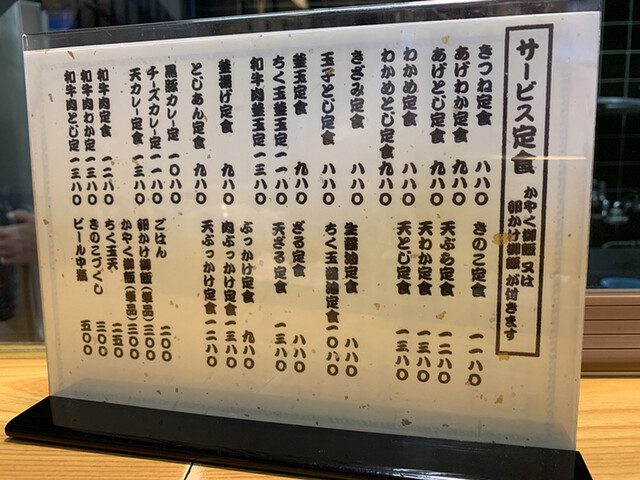 サービス定食
かやく御飯 又は
卵かけ御飯 が付きます
きつね定食 八八〇
あげわか定食 九八〇
あげとじ定食 九八〇
わかめ定食 八八〇
わかめとじ定食 九八〇
きざみ定食 八八〇
玉子とじ定食 八八〇
釜玉定食 九八〇
ちく玉釜玉定 一一八〇
和牛肉釜玉定 一三八〇
釜揚げ定食 九八〇
とじあん定食 九八〇
黒豚カレー定 一〇八〇
チーズカレー定 一一八〇
天カレー定食 一三八〇
和牛肉定食 一二八〇
和牛肉わか定 一三八〇
和牛肉とじ定 一三八〇
きのこ定食 一一八〇
天ぷら定食 一二八〇
天わか定食 一三八〇
天とじ定食 一三八〇
生醤油定食 八八〇
ちく玉醤油定食 一〇八〇
ざる定食 八八〇
天ざる定食 一三八〇
ぶっかけ定食 九八〇
肉ぶっかけ定食 一三八〇
天ぶっかけ定食 一二八〇
ごはん 二〇〇
卵かけ御飯(単品) 三〇〇
かやく御飯(単品) 三〇〇
ちく玉天 二五〇
きのこづくし 三〇〇
ビール中瓶 五〇〇